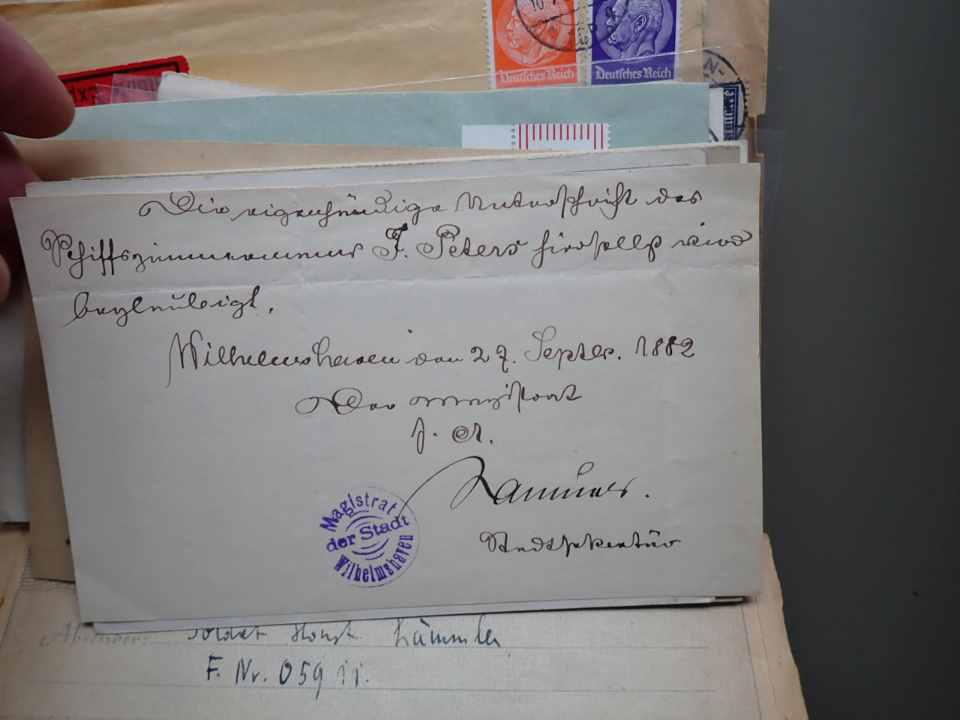 Deutsches Reich
Deutsches Reich
Die eigenhändige Unterschrift des
Schiffszimmermanns F. Peters hierselbst wird
beglaubigt.
Wilhelmshaven den 27. Septbr. 1882
Der Magistrat
J. A.
Stadtsekretär
Magistrat
der Stadt
Wilhelmshaven
Soldat Horst Lämmler
F. Nr. 05911.